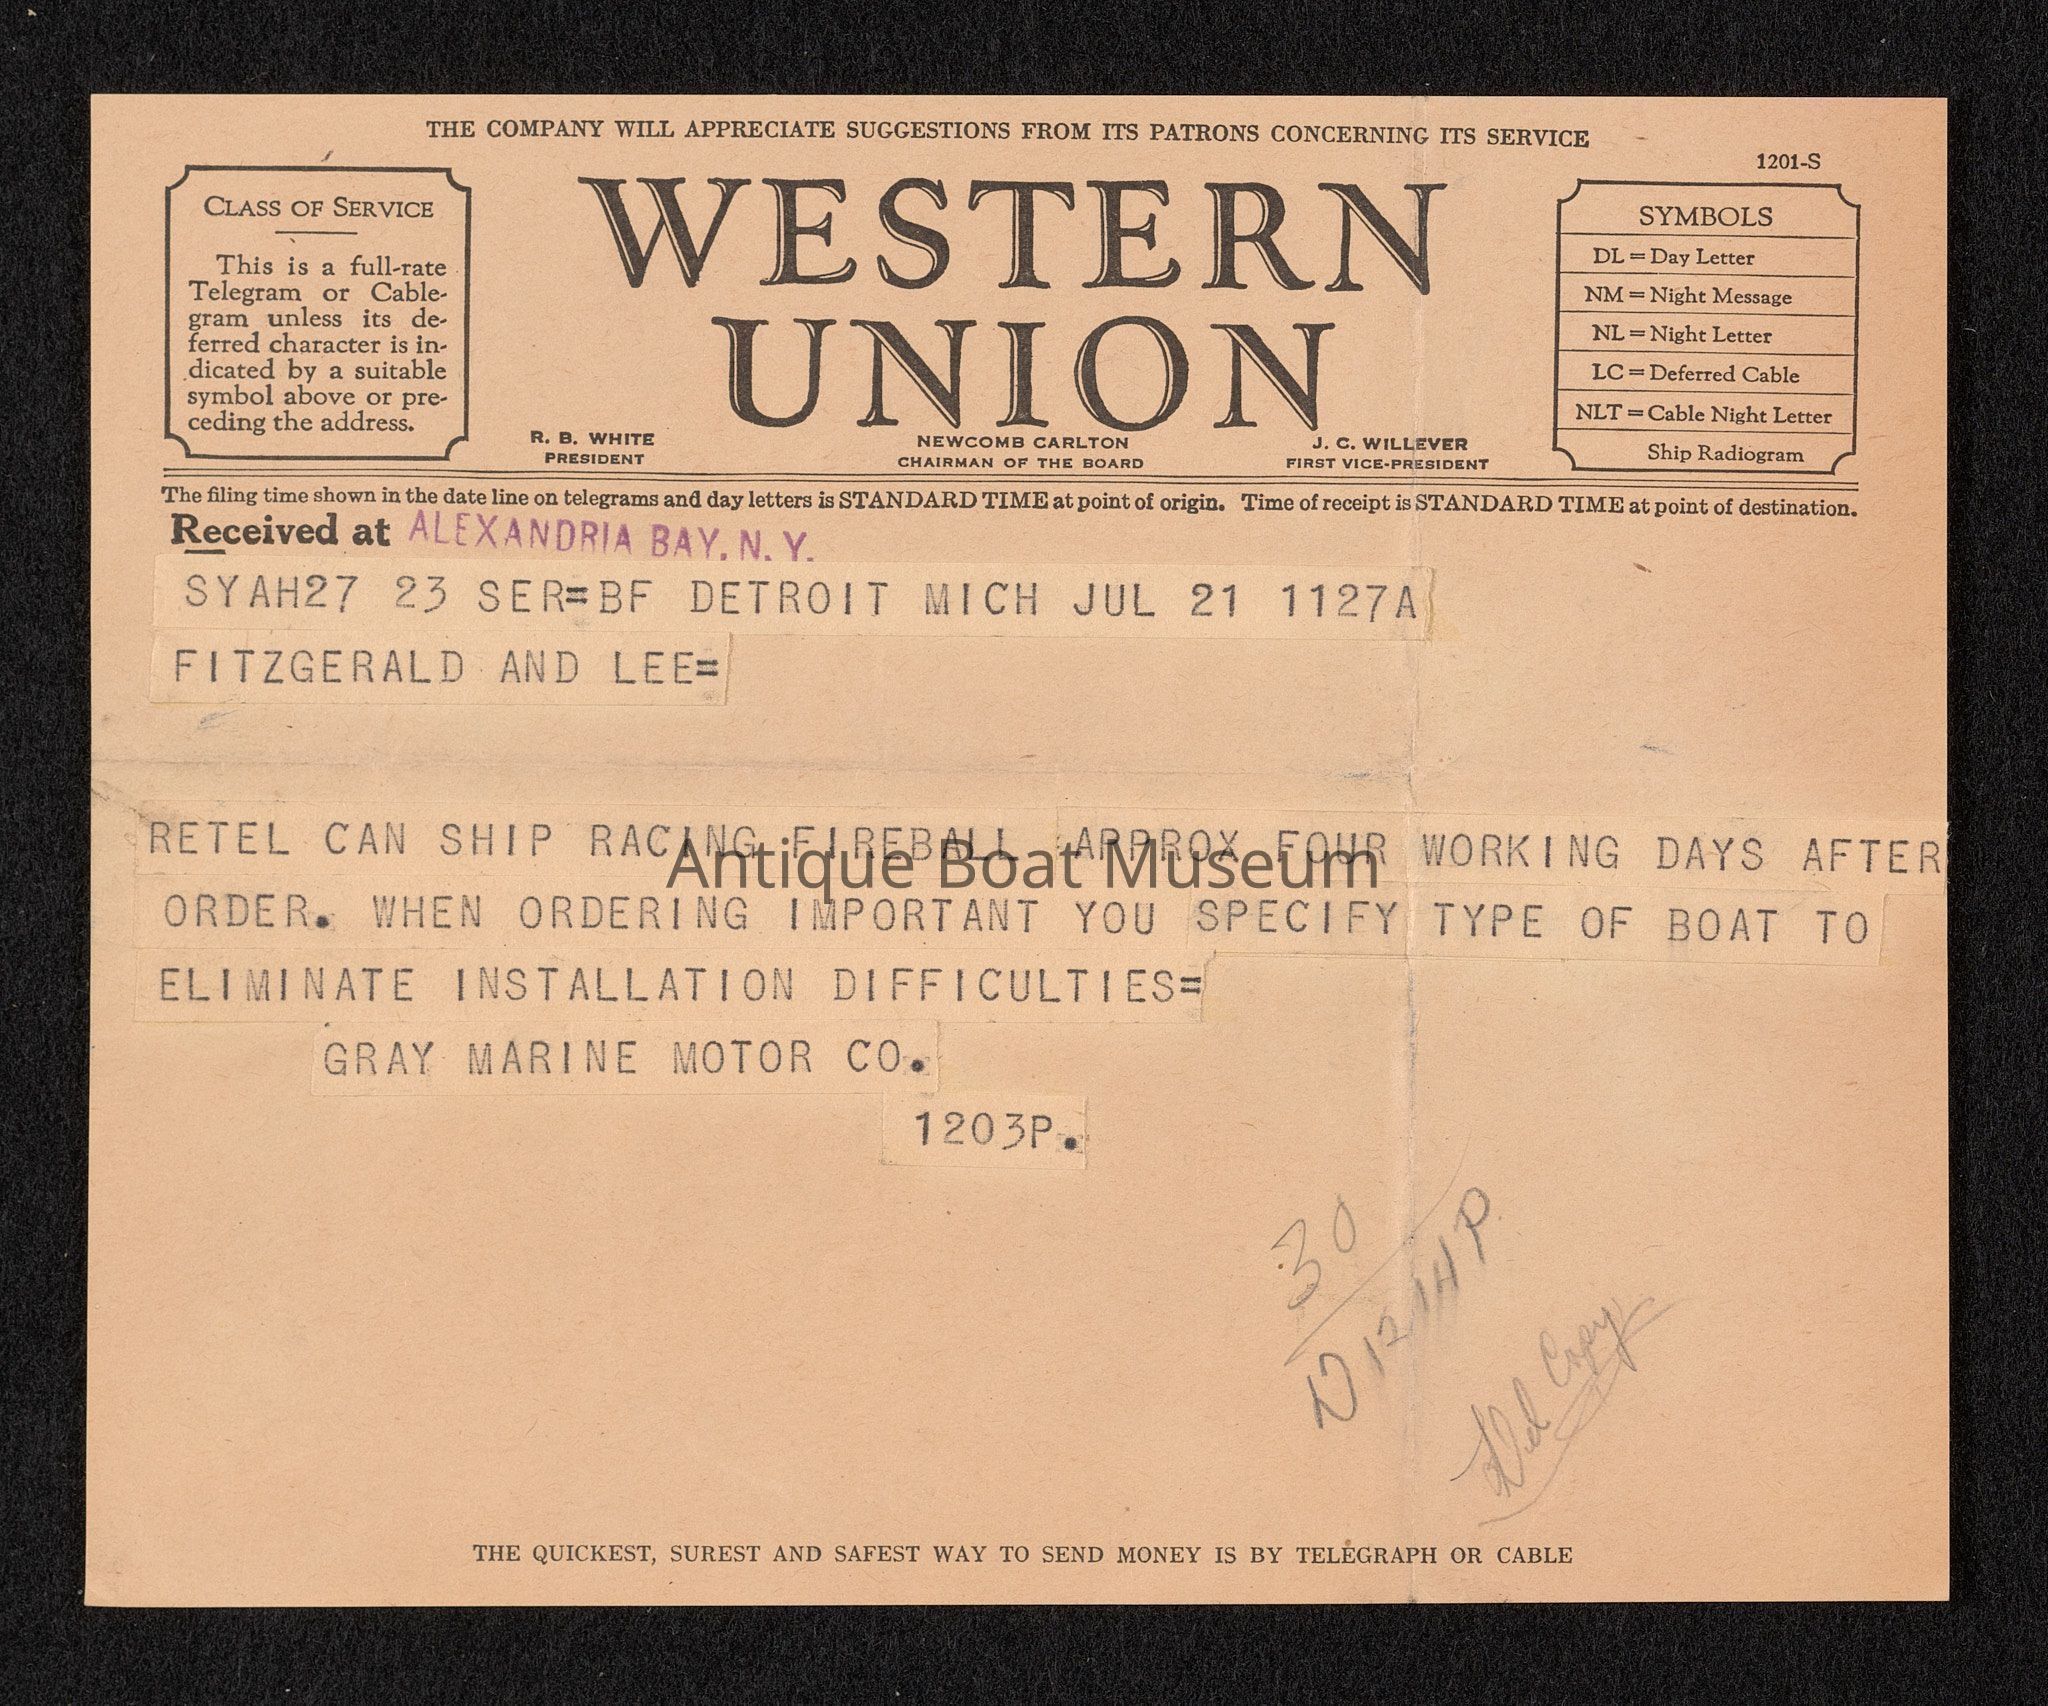 THE COMPANY WILL APPRECIATE SUGGESTIONS FROM ITS PATRONS CONCERNING ITS SERVICE
1201-S
CLASS OF SERVICE
This is a full-rate
Telegram or Cable-
gram unless its de-
ferred character is in-
dicated by a suitable
symbol above or pre-
ceding the address.
WESTERN
UNION
R. B. WHITE
PRESIDENT
NEWCOMB CARLTON
CHAIRMAN OF THE BOARD
J. C. WILLEVER
FIRST VICE-PRESIDENT
SYMBOLS
DL = Day Letter
NM = Night Message
NL = Night Letter
LC = Deferred Cable
NLT = Cable Night Letter
Ship Radiogram
The filing time shown in the date line on telegrams and day letters is STANDARD TIME at point of origin. Time of receipt is STANDARD TIME at point of destination.
Received at ALEXANDRIA BAY, N. Y.
SYAH27 23 SER=BF DETROIT MICH JUL 21 1127A
FITZGERALD AND LEE=
RETEL CAN SHIP RACING FIREBALL APPROX FOUR WORKING DAYS AFTER
Antique Boat Museum
ORDER. WHEN ORDERING IMPORTANT YOU SPECIFY TYPE OF BOAT TO
ELIMINATE INSTALLATION DIFFICULTIES=
GRAY MARINE MOTOR CO.
1203P.
30
D 1214P
Del Copy
THE QUICKEST, SUREST AND SAFEST WAY TO SEND MONEY IS BY TELEGRAPH OR CABLE